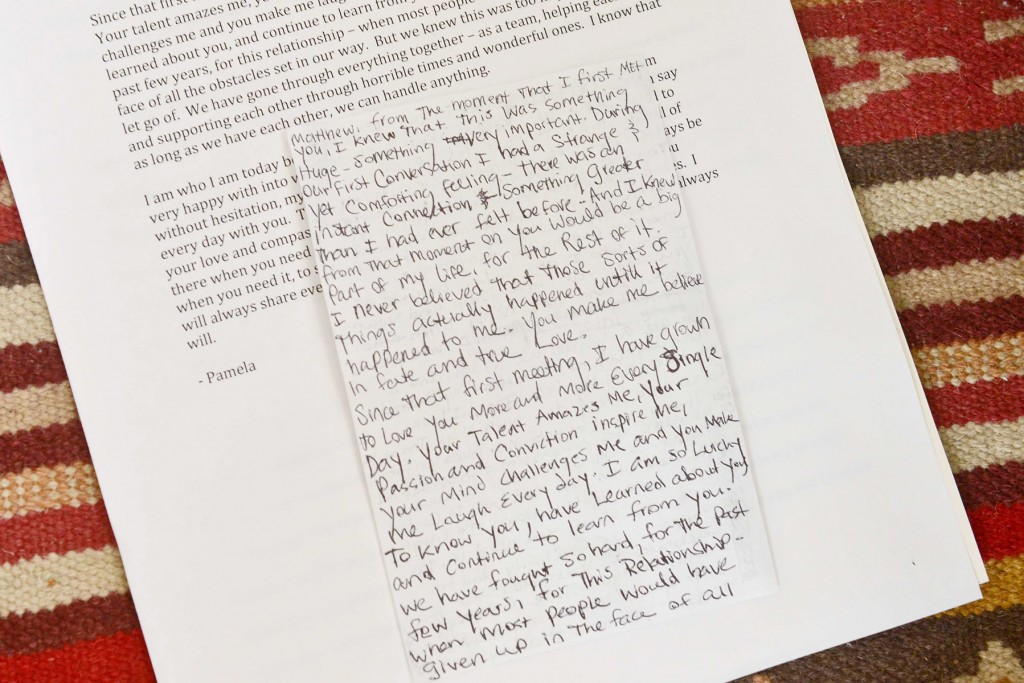 Since that first
Your talent amazes me, yo
challenges me and you make me laug
learned about you, and continue to learn from
past few years, for this relationship – when most people
face of all the obstacles set in our way. But we knew this was too
let go of. We have gone through everything together – as a team, helping each
and supporting each other through horrible times and wonderful ones. I know that
as long as we have each other, we can handle anything.
I am who I am today b
very happy with into
without hesitation, my
every day with you. T
your love and compas
there when you need
when you need it, to s
will always share eve
will.
- Pamela
m
say
I to
l of
ays be
u
s. I
always
Matthew, from The moment That I first Met
you, I knew That This was something
Huge - something very important. During
our first Conversation I had a Strange &
yet comforting feeling - there was an
instant Connection & something greater
Than I had ever felt before - And I knew
from That moment on you would be a big
Part of my life, for the Rest of it.
I never believed That those sorts of
Things actually happened untill it
happened to me. You make me believe
in fate and true Love.
Since that first meeting, I have grown
to Love you More and More Every Single
Day. Your Talent Amazes Me, Your
Passion and Conviction inspire me,
your Mind challenges Me and you Make
me Laugh Every day. I am so Lucky
To know you, have Learned about you,
and Continue to learn from you.
we have fought so hard, for the Past
few Years, for This Relationship -
when most People would have
given up in The face of all